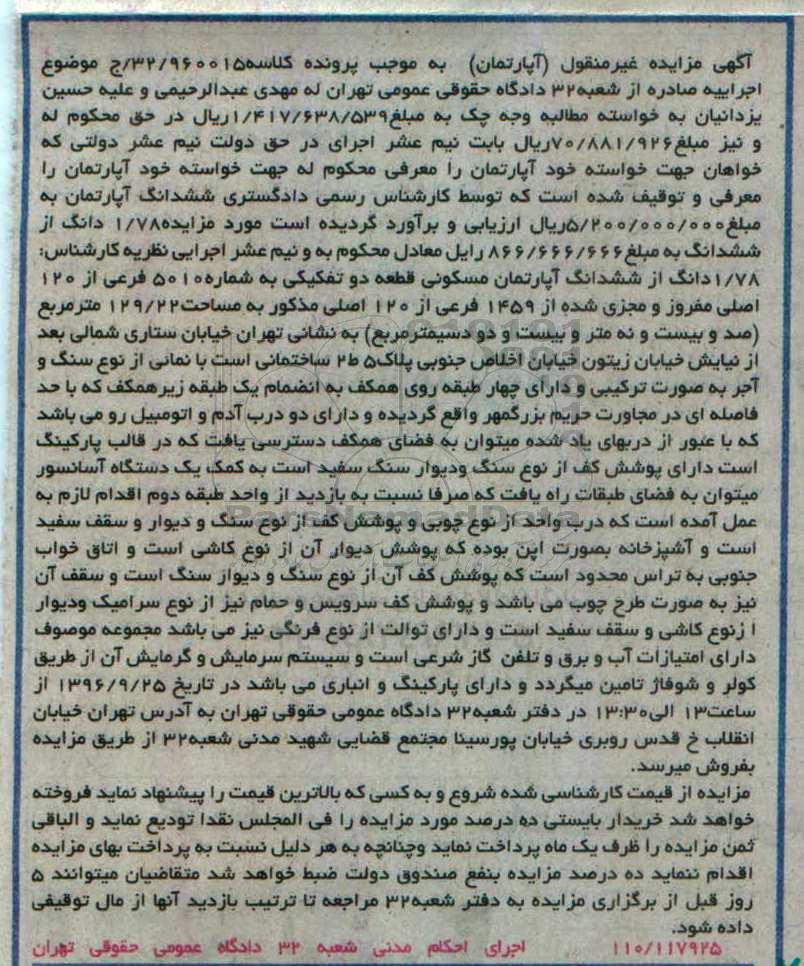 آگهی مزایده غیرمنقول (آپارتمان) به موجب پرونده کلاسه۳۲/۹۶۰۰۱۵/ج موضوع
اجراییه صادره از شعبه۳۲ دادگاه حقوقی عمومی تهران له مهدی عبدالرحیمی و علیه حسین
یزدانیان به خواسته مطالبه وجه چک به مبلغ۱/۴۱۷/۶۳۸/۵۳۹ریال در حق محکوم له
و نیز مبلغ۷۰/۸۸۱/۹۲۶ریال بابت نیم عشر اجرای در حق دولت نیم عشر دولتی که
خواهان جهت خواسته خود آپارتمان را معرفی محکوم له جهت خواسته خود آپارتمان را
معرفی و توقیف شده است که توسط کارشناس رسمی دادگستری ششدانگ آپارتمان به
مبلغ۵/۲۰۰/۰۰۰/۰۰۰ریال ارزیابی و برآورد گردیده است مورد مزایده۱/۷۸ دانگ از
ششدانگ به مبلغ۸۶۶/۶۶۶/۶۶۶ رایل معادل محکوم به و نیم عشر اجرایی نظریه کارشناس:
۱/۷۸دانگ از ششدانگ آپارتمان مسکونی قطعه دو تفکیکی به شماره۵۰۱۰ فرعی از ۱۲۰
اصلی مفروز و مجزی شده از ۱۴۵۹ فرعی از ۱۲۰ اصلی مذکور به مساحت۱۲۹/۲۲ مترمربع
(صد و بیست و نه متر و بیست و دو دسیمترمربع) به نشانی تهران خیابان ستاری شمالی بعد
از نیایش خیابان زیتون خیابان اخلاص جنوبی پلاک۵ ط۲ ساختمانی است با نمائی از نوع سنگ و
آجر به صورت ترکیبی و دارای چهار طبقه روی همکف به انضمام یک طبقه زیرهمکف که با حد
فاصله ای در مجاورت حریم بزرگمهر واقع گردیده و دارای دو درب آدم و اتومبیل رو می باشد
که با عبور از دربهای یاد شده میتوان به فضای همکف دسترسی یافت که در قالب پارکینگ
است دارای پوشش کف از نوع سنگ ودیوار سنگ سفید است به کمک یک دستگاه آسانسور
میتوان به فضای طبقات راه یافت که صرفا نسبت به بازدید از واحد طبقه دوم اقدام لازم به
عمل آمده است که درب واحد از نوع چوبی و پوشش کف از نوع سنگ و دیوار و سقف سفید
است و آشپزخانه بصورت اپن بوده که پوشش دیوار آن از نوع کاشی است و اتاق خواب
جنوبی به تراس محدود است که پوشش کف آن از نوع سنگ و دیوار سنگ است و سقف آن
نیز به صورت طرح چوب می باشد و پوشش کف سرویس و حمام نیز از نوع سرامیک ودیوار
ا زنوع کاشی و سقف سفید است و دارای توالت از نوع فرنگی نیز می باشد مجموعه موصوف
دارای امتیازات آب و برق و تلفن گاز شرعی است و سیستم سرمایش و گرمایش آن از طریق
کولر و شوفاژ تامین میگردد و دارای پارکینگ و انباری می باشد در تاریخ ۱۳۹۶/۹/۲۵ از
ساعت۱۳ الی۱۳:۳۰ در دفتر شعبه۳۲ دادگاه عمومی حقوقی تهران به آدرس تهران خیابان
انقلاب خ قدس روبری خیابان پورسینا مجتمع قضایی شهید مدنی شعبه۳۲ از طریق مزایده
بفروش میرسد.
مزایده از قیمت کارشناسی شده شروع و به کسی که بالاترین قیمت را پیشنهاد نماید فروخته
خواهد شد خریدار بایستی ده درصد مورد مزایده را فی المجلس نقدا تودیع نماید و الباقی
ثمن مزایده را ظرف یک ماه پرداخت نماید وچنانچه به هر دلیل نسبت به پرداخت بهای مزایده
اقدام ننماید ده درصد مزایده بنفع صندوق دولت ضبط خواهد شد متقاضیان میتوانند ۵
روز قبل از برگزاری مزایده به دفتر شعبه۳۲ مراجعه تا ترتیب بازدید آنها از مال توقیفی
داده شود.
۱۱۰/۱۱۷۹۲۵ اجرای احکام مدنی شعبه ۳۲ دادگاه عمومی حقوقی تهران